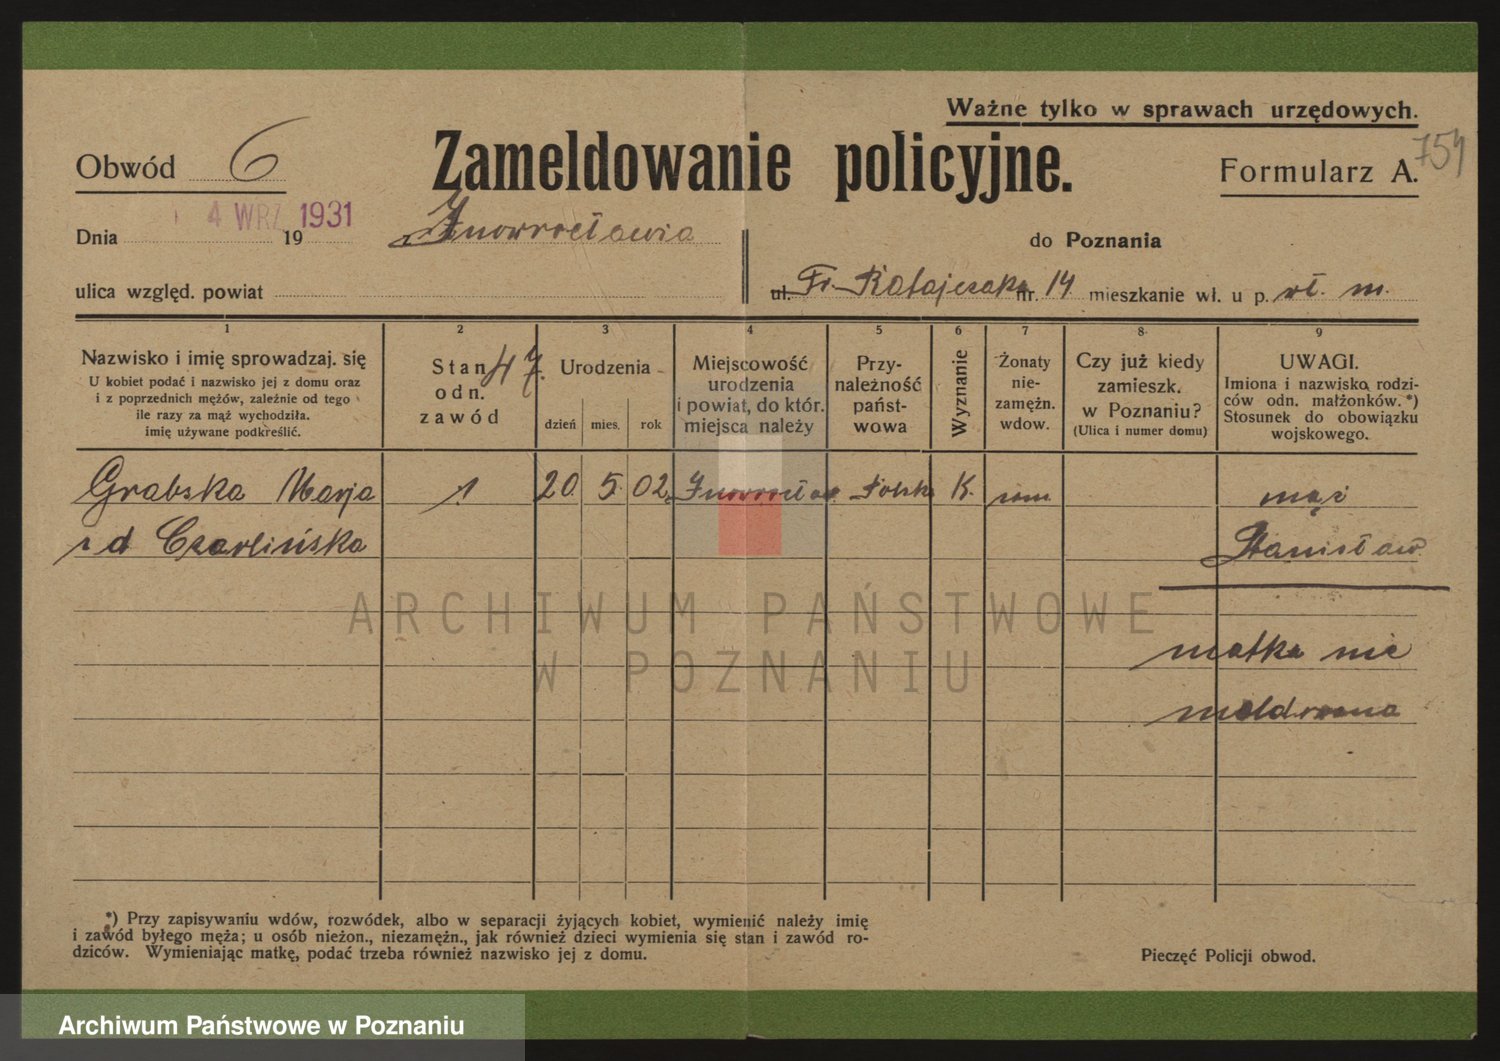 Ważne tylko w sprawach urzędowych.
Obwód 6
Zameldowanie policyjne.
Formularz A.
759
Dnia 4 WRZ. 1931 19
Inowrocławia
do Poznania
ulica względ. powiat
ul. Fr. Ratajczaka nr. 14 mieszkanie wł. u p. wł. m.
1 2 3 4 5 6 7 8 9
Nazwisko i imię sprowadzaj. się
U kobiet podać i nazwisko jej z domu oraz
i z poprzednich mężów, zależnie od tego
ile razy za mąż wychodziła.
imię używane podkreślić.
Stan
odn.
zawód
47.
Urodzenia
dzień mies. rok
Miejscowość
urodzenia
i powiat, do któr.
miejsca należy
Przy-
należność
państ-
wowa
Wyznanie
Żonaty
nie-
zamężn.
wdow.
Czy już kiedy
zamieszk.
w Poznaniu?
(Ulica i numer domu)
UWAGI.
Imiona i nazwiska rodzi-
ców odn. małżonków.*)
Stosunek do obowiązku
wojskowego.
Grabska Marja 1 20. 5. 02. Inowrocław Polska K. zam. mąż
z d Czarlińska Stanisław
matka nie
meldowana
ARCHIWUM PAŃSTWOWE
W POZNANIU
*) Przy zapisywaniu wdów, rozwódek, albo w separacji żyjących kobiet, wymienić należy imię
i zawód byłego męża; u osób nieżon., niezamężn., jak również dzieci wymienia się stan i zawód ro-
dziców. Wymieniając matkę, podać trzeba również nazwisko jej z domu.
Pieczęć Policji obwod.
Archiwum Państwowe w Poznaniu